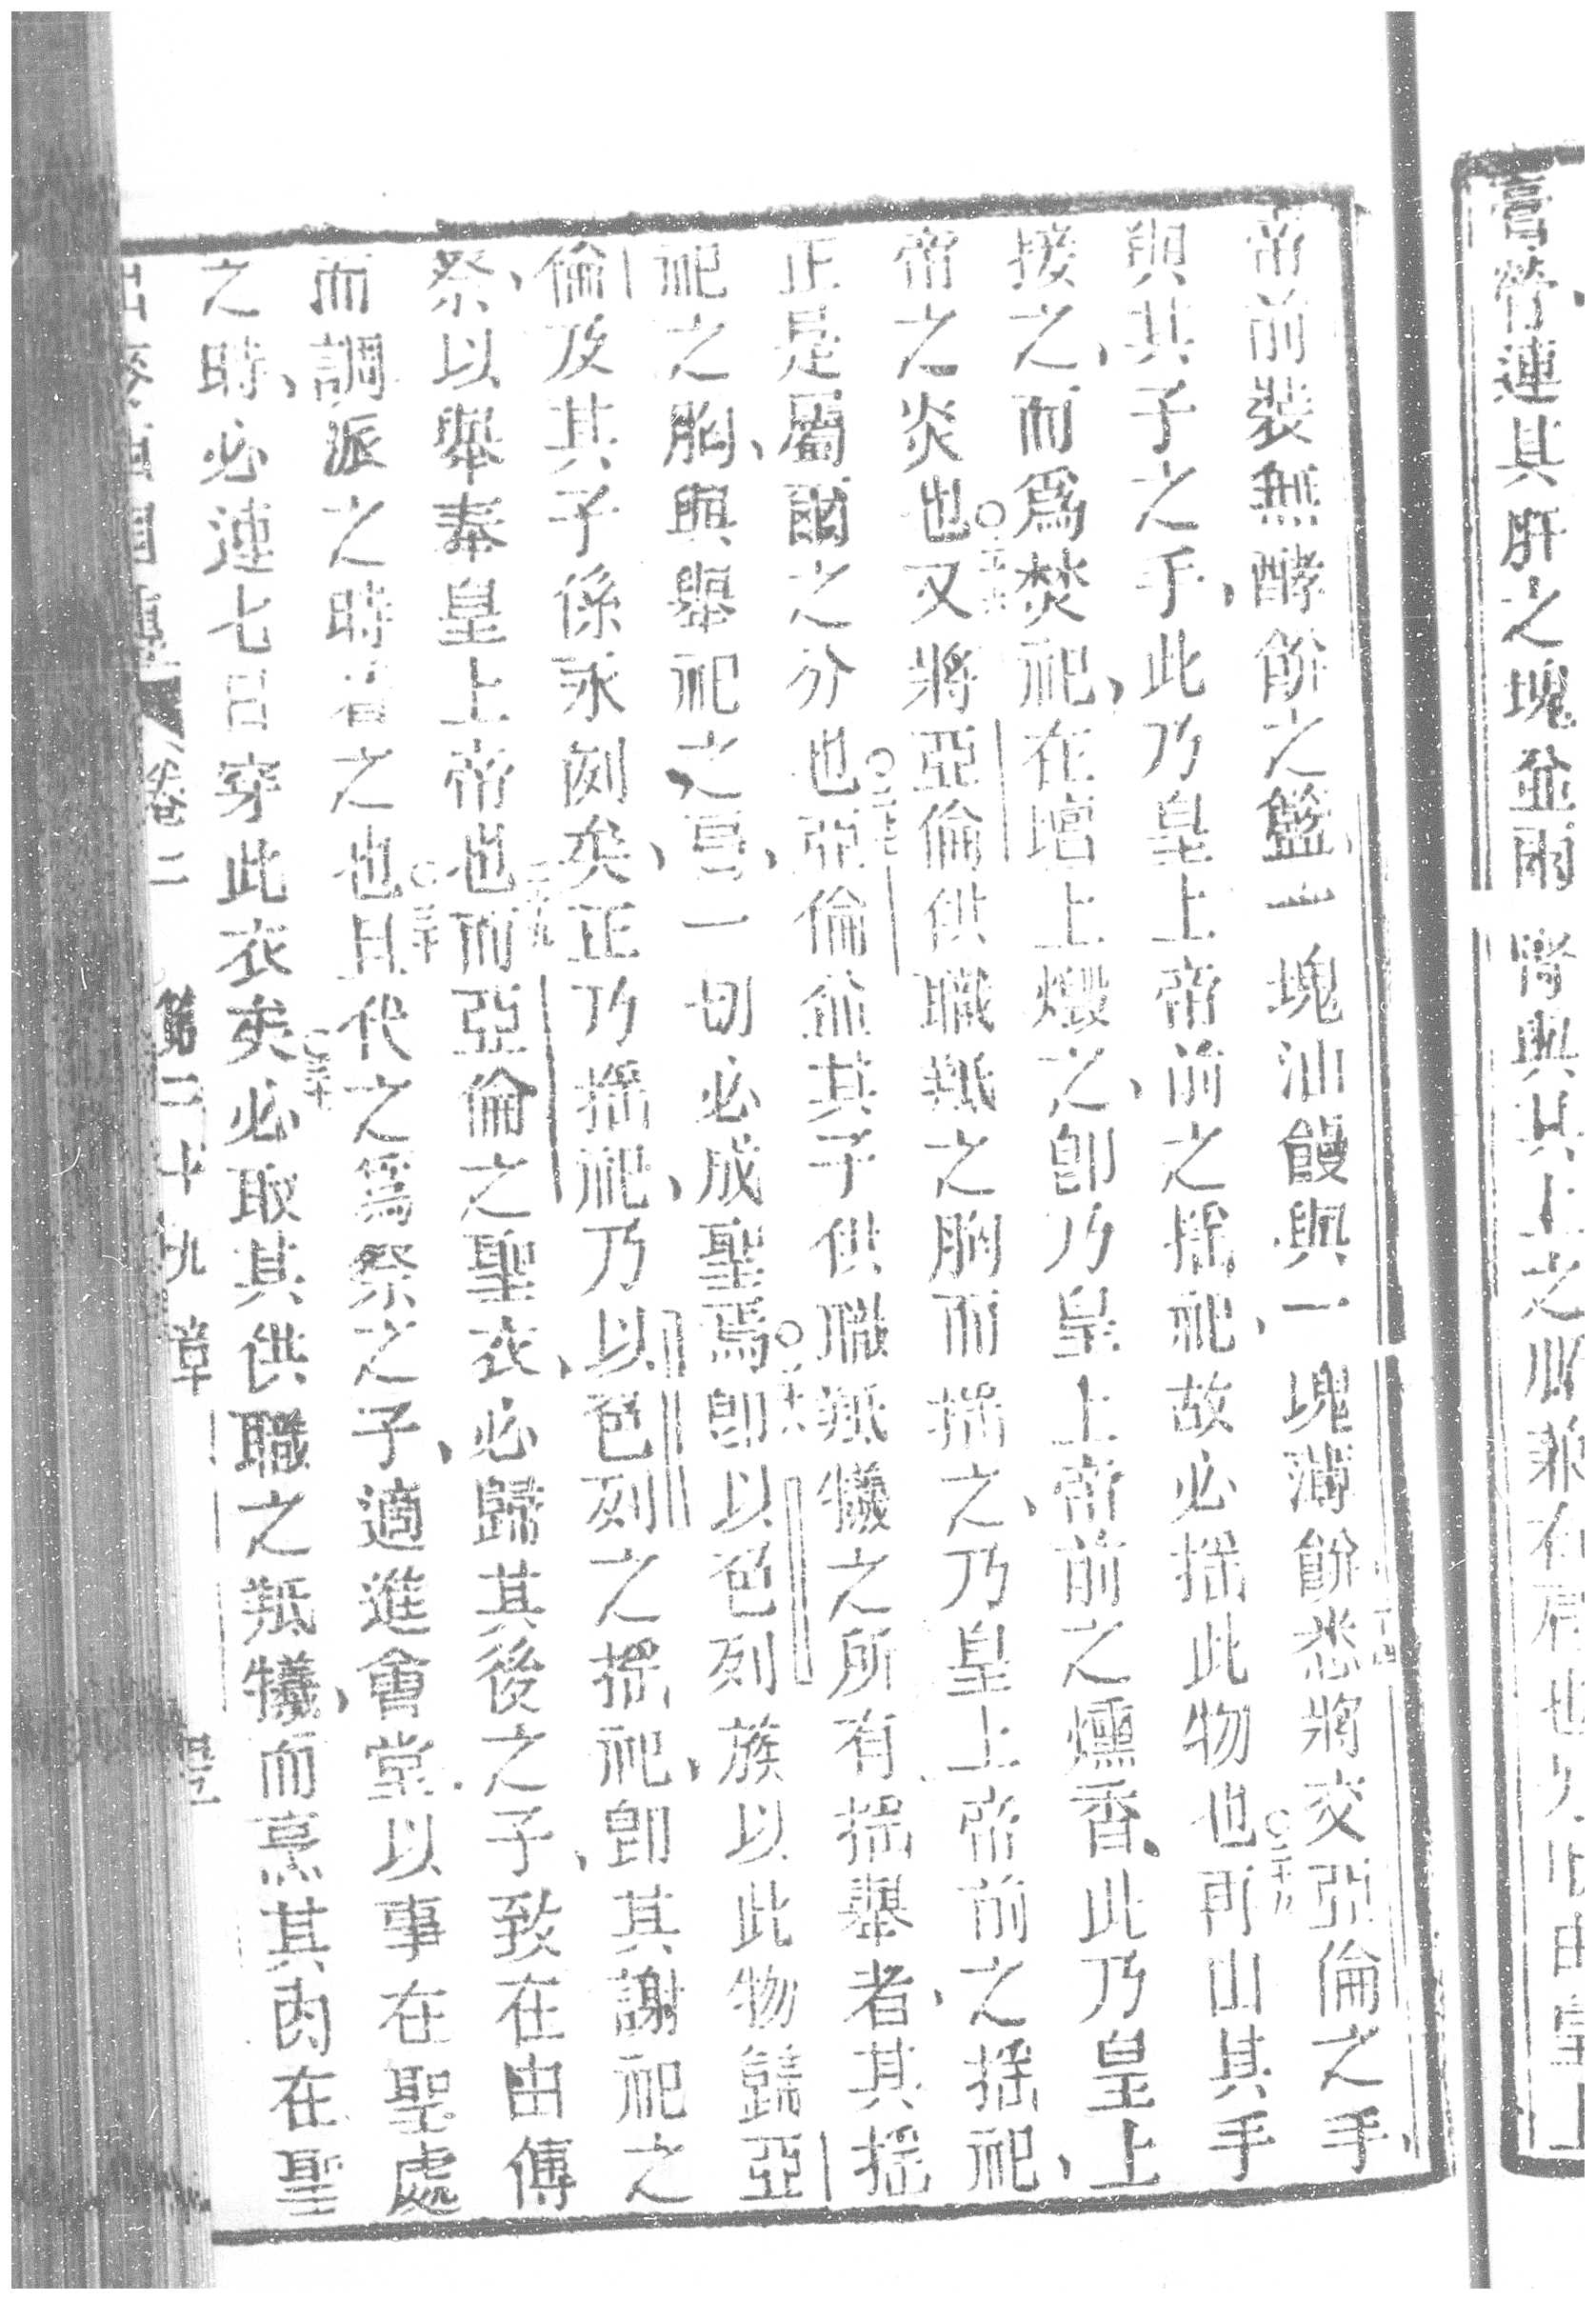 膏管連其肝之塊並兩腎與其上之脂兼右肩也
帝前裝無酵餅之籃一塊油饅與一塊薄餅悉將交亞倫之手、
與其子之手、此乃皇上帝前之搖祀、故必搖此物也再由其手
接之、而爲焚祀、在壇上燬之、卽乃皇上帝前之燻香、此乃皇上
帝之炎也又將亞倫供職羝之胸而搖之、乃皇上帝前之搖祀、
正是屬爾之分也亞倫並其子供職羝犠之所有搖舉者、其搖
祀之胸、與舉祀之肩、一切必成聖焉卽以色列族以此物饋亞
倫及其子係永例矣、正乃搖祀、乃以色列之搖祀、卽其謝祀之
祭、以舉奉皇上帝也而亞倫之聖衣、必歸其後之子、致在由傅
而調派之時着之也且代之爲祭之子、適進會堂以事在聖處
之時、必連七日穿此衣矣必取其供職之羝犠、而烹其肉在聖
卷二 第二十九章